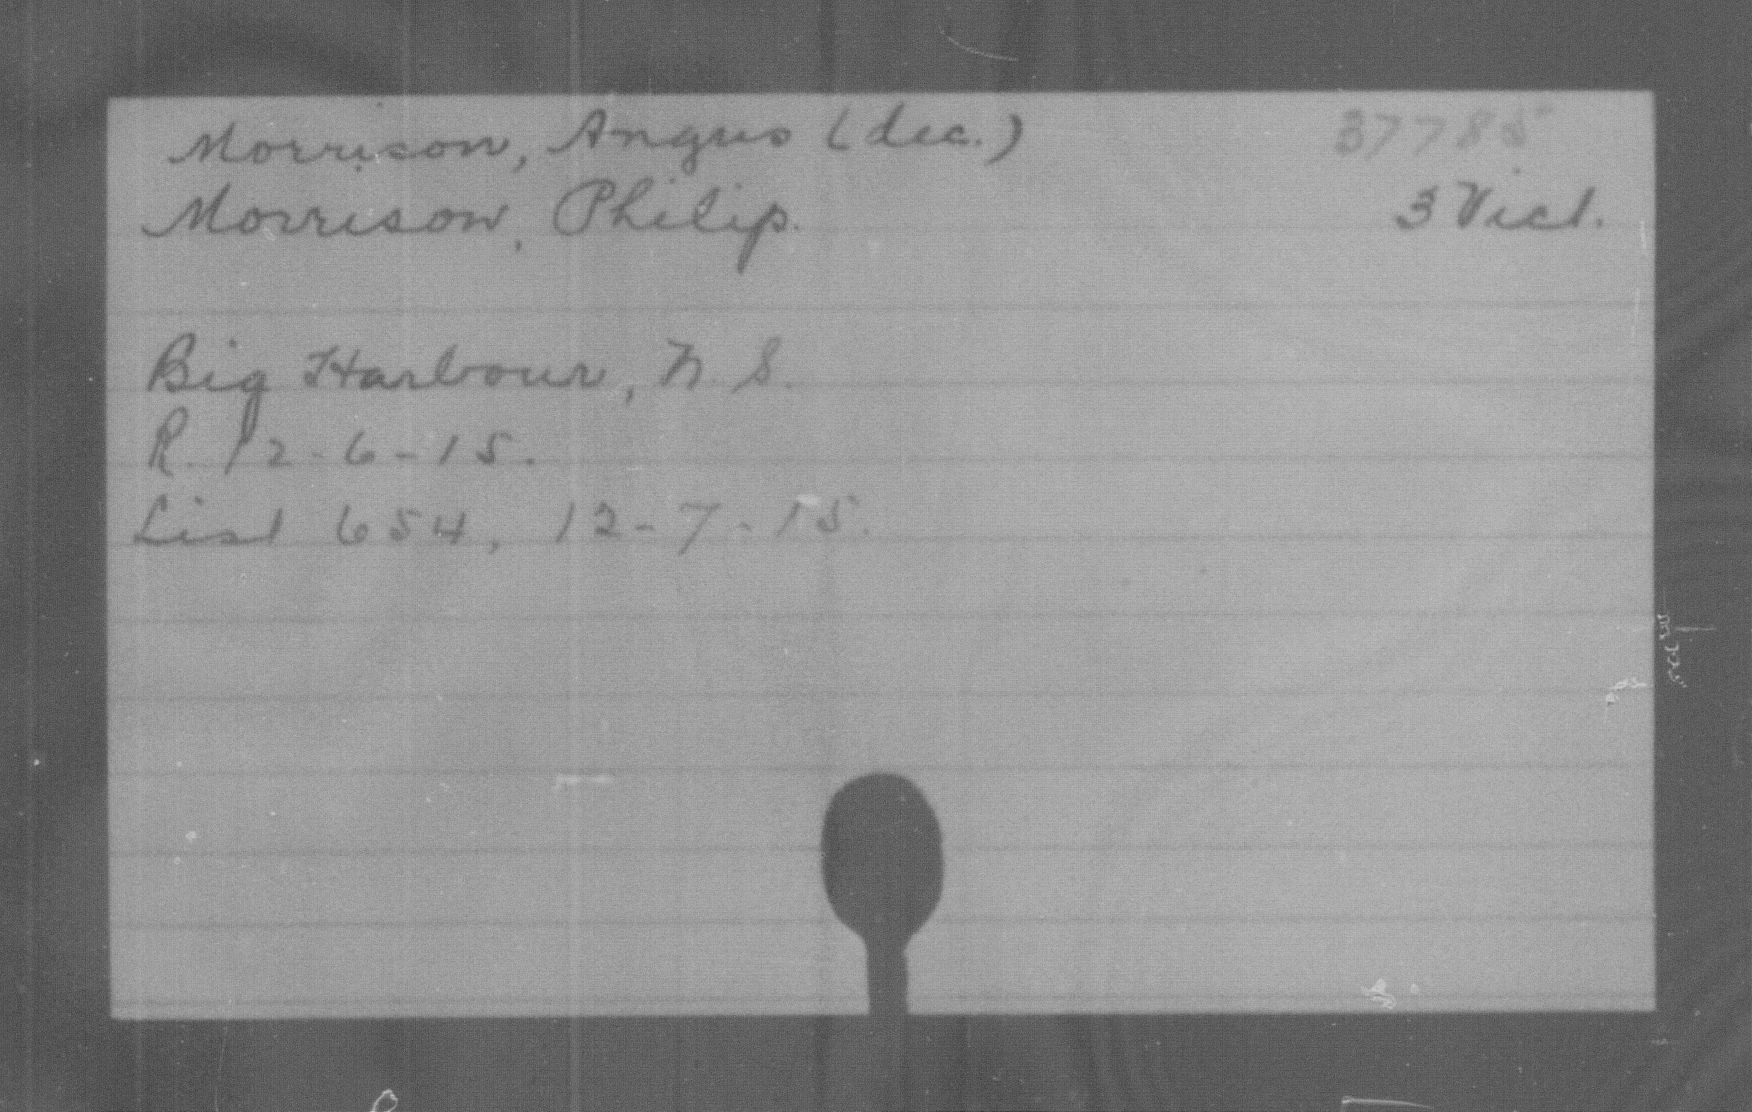 Morrison, Angus (dec.) 37785
Morrison, Philip. 3 Vict.
Big Harbour, N. S.
R. 12-6-15.
List 654, 12-7-15.